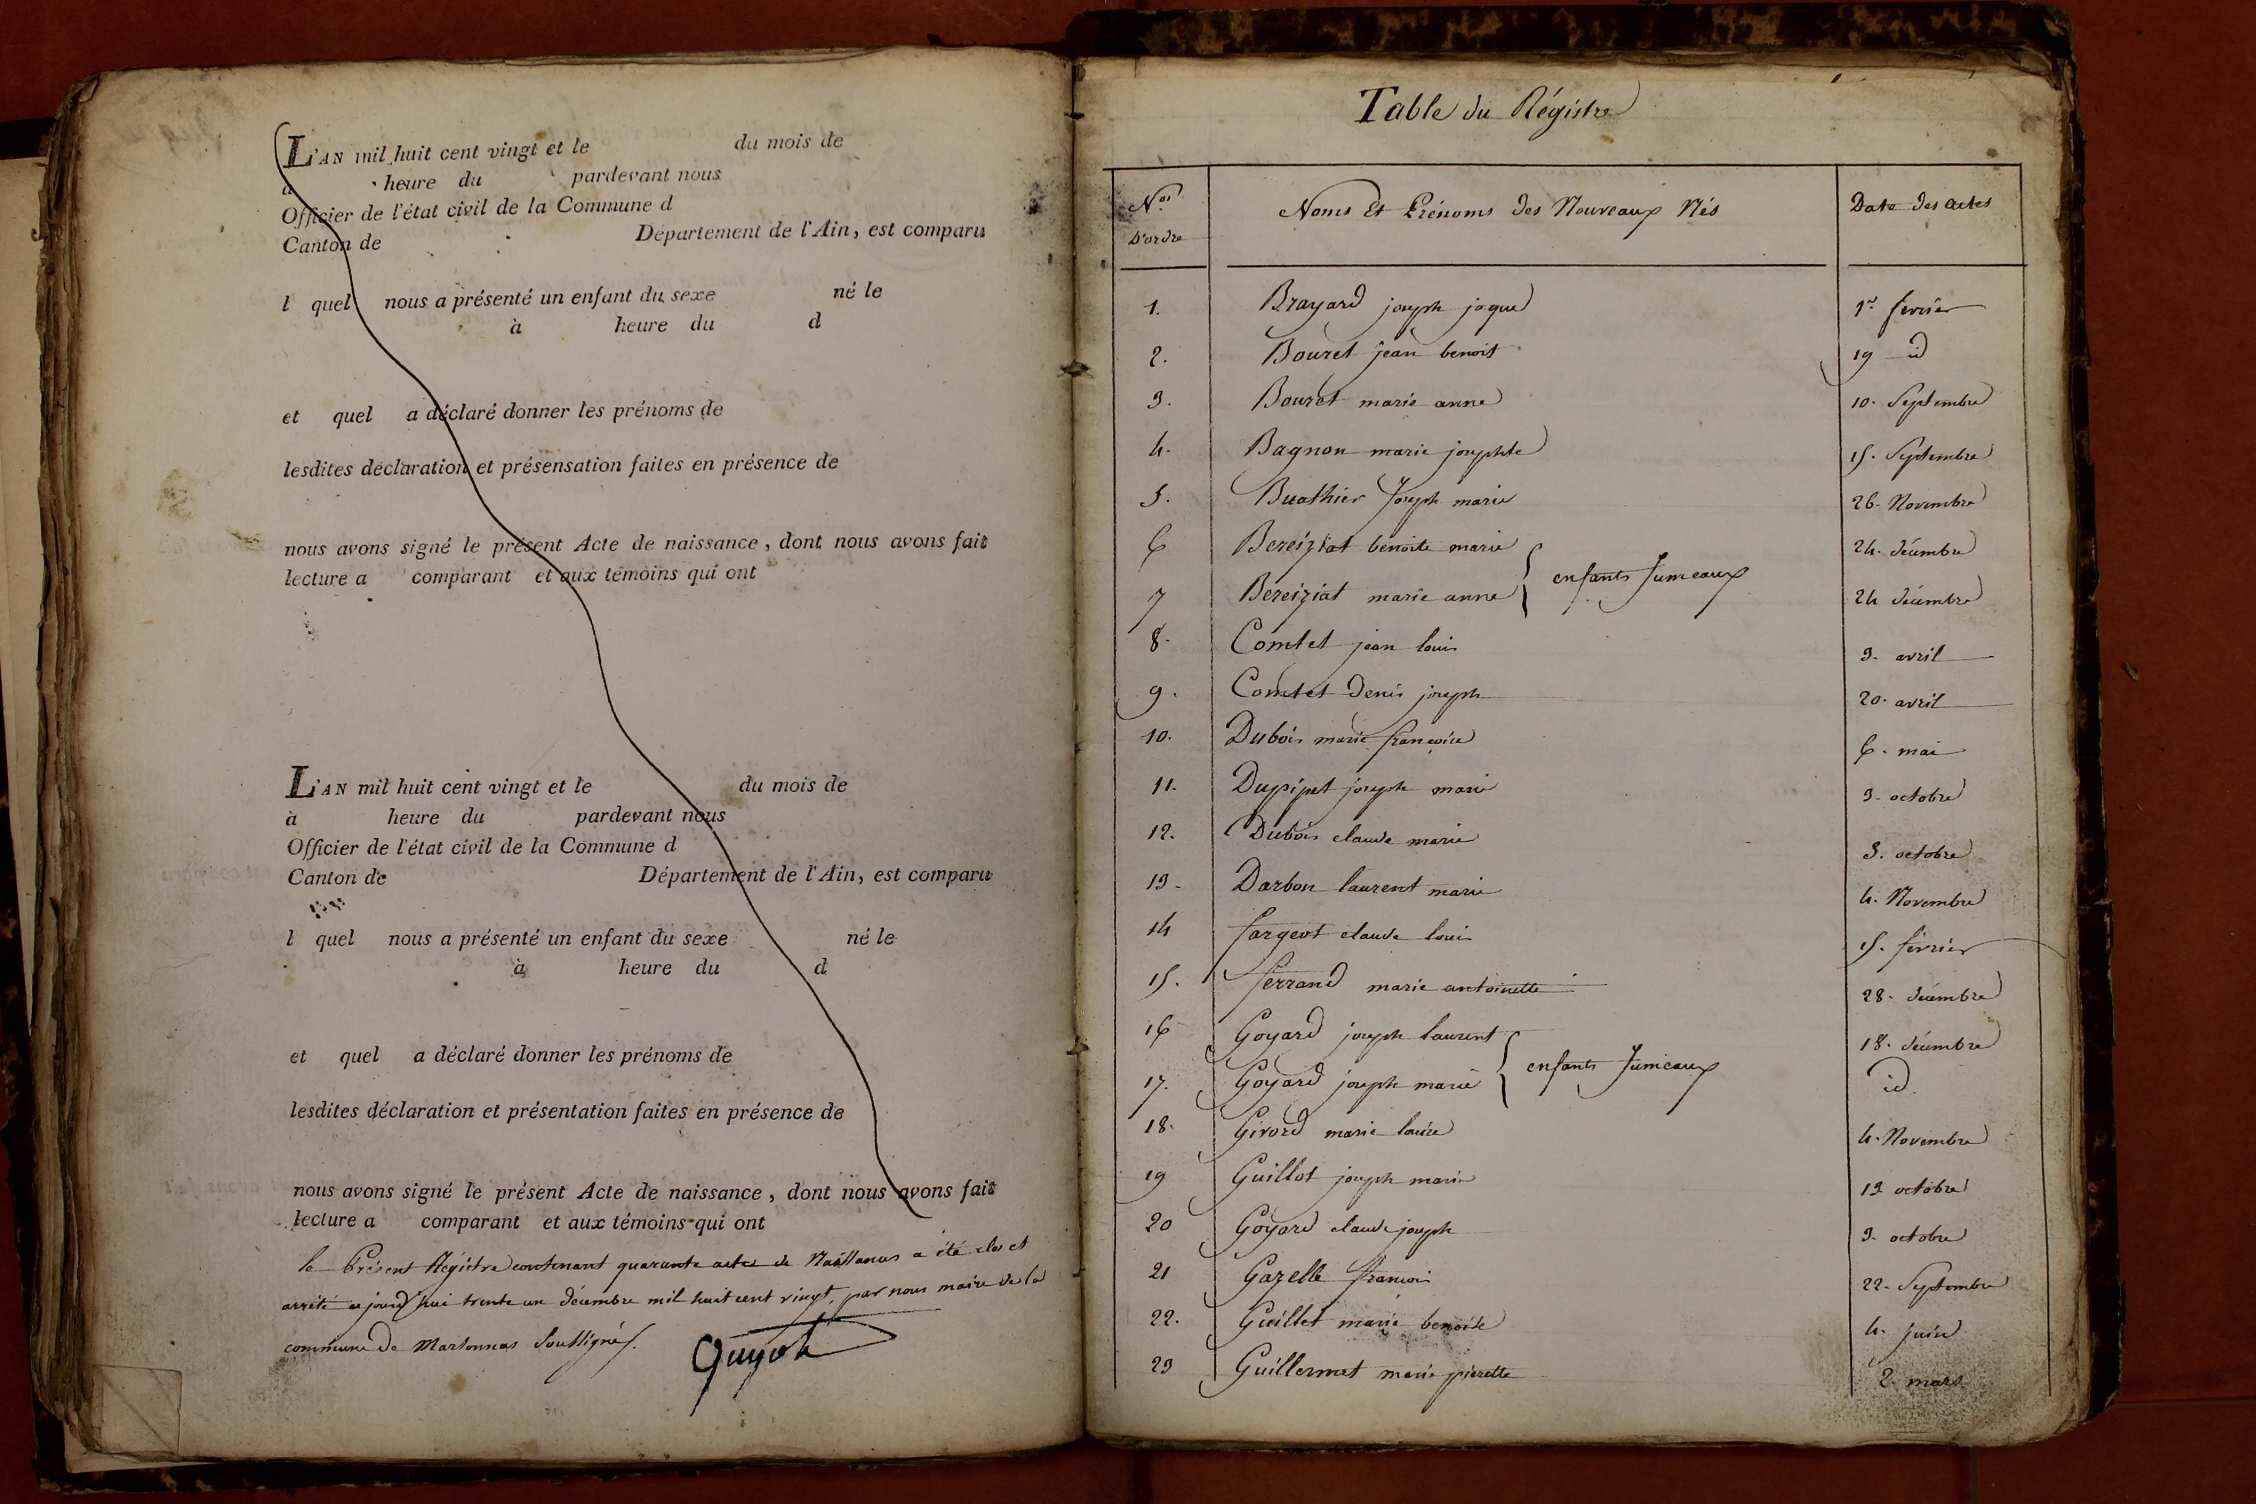 L'AN mil huit cent vingt et le du mois de
à heure du pardevant nous
Officier de l'état civil de la Commune d
Canton de Département de l'Ain, est comparu
l quel nous a présenté un enfant du sexe né le
à heure du d
et quel a déclaré donner les prénoms de
lesdites déclaration et présensation faites en présence de
nous avons signé le présent Acte de naissance, dont nous avons fait
lecture a comparant et aux témoins qui ont
L'AN mil huit cent vingt et le du mois de
à heure du pardevant nous
Officier de l'état civil de la Commune d
Canton de Département de l'Ain, est comparu
l quel nous a présenté un enfant du sexe né le
à heure du d
et quel a déclaré donner les prénoms de
lesdites déclaration et présentation faites en présence de
nous avons signé le présent Acte de naissance, dont nous avons fait
lecture a comparant et aux témoins qui ont
le Présent Régistre contenant quarante actes de Naissances a été clos et
arrêté ajourd'hui trente un décembre mil huit cent vingt, par nous maire de la
commune de Marsonnas Soussigné.
Guyot
Table du Régistre
Nos D'ordre Noms Et Prénoms des Nouveaux Nés Date des actes
1. Brayard joseph jaque 1er fevrier
2. Bouret jean benoit 19 id
3. Bouret marie anne 10. Septembre
4. Bagnon marie josephte 15. Septembre
5. Buathier Joseph marie 26. Novembre
6 Bereiziat benoite marie 24. décembre
enfants Jumeaux
7 Bereiziat marie anne 24 décembre
8. Comtet jean louis 3. avril
9. Comtet denis joseph 20. avril
10. Dubois marie françoise 6. mai
11. Dupipet joseph marie 3. octobre
12. Dubois claude marie 5. octobre
13. Darbon laurent marie 4. Novembre
14 fargeot claude louis 15. février
15. ferrand marie antoinette 28. décembre
16 Goyard joseph laurent 18. décembre
enfants Jumeaux
17. Goyard joseph marie id
18. Givord marie louise 4. Novembre
19 Guillot joseph marie 13 octobre
20 Goyard claude joseph 3. octobre
21 Gazelle françois 22. Septembre
22. Guillet marie benoite 4. juin
23 Guillermet marie pierette 2. mars